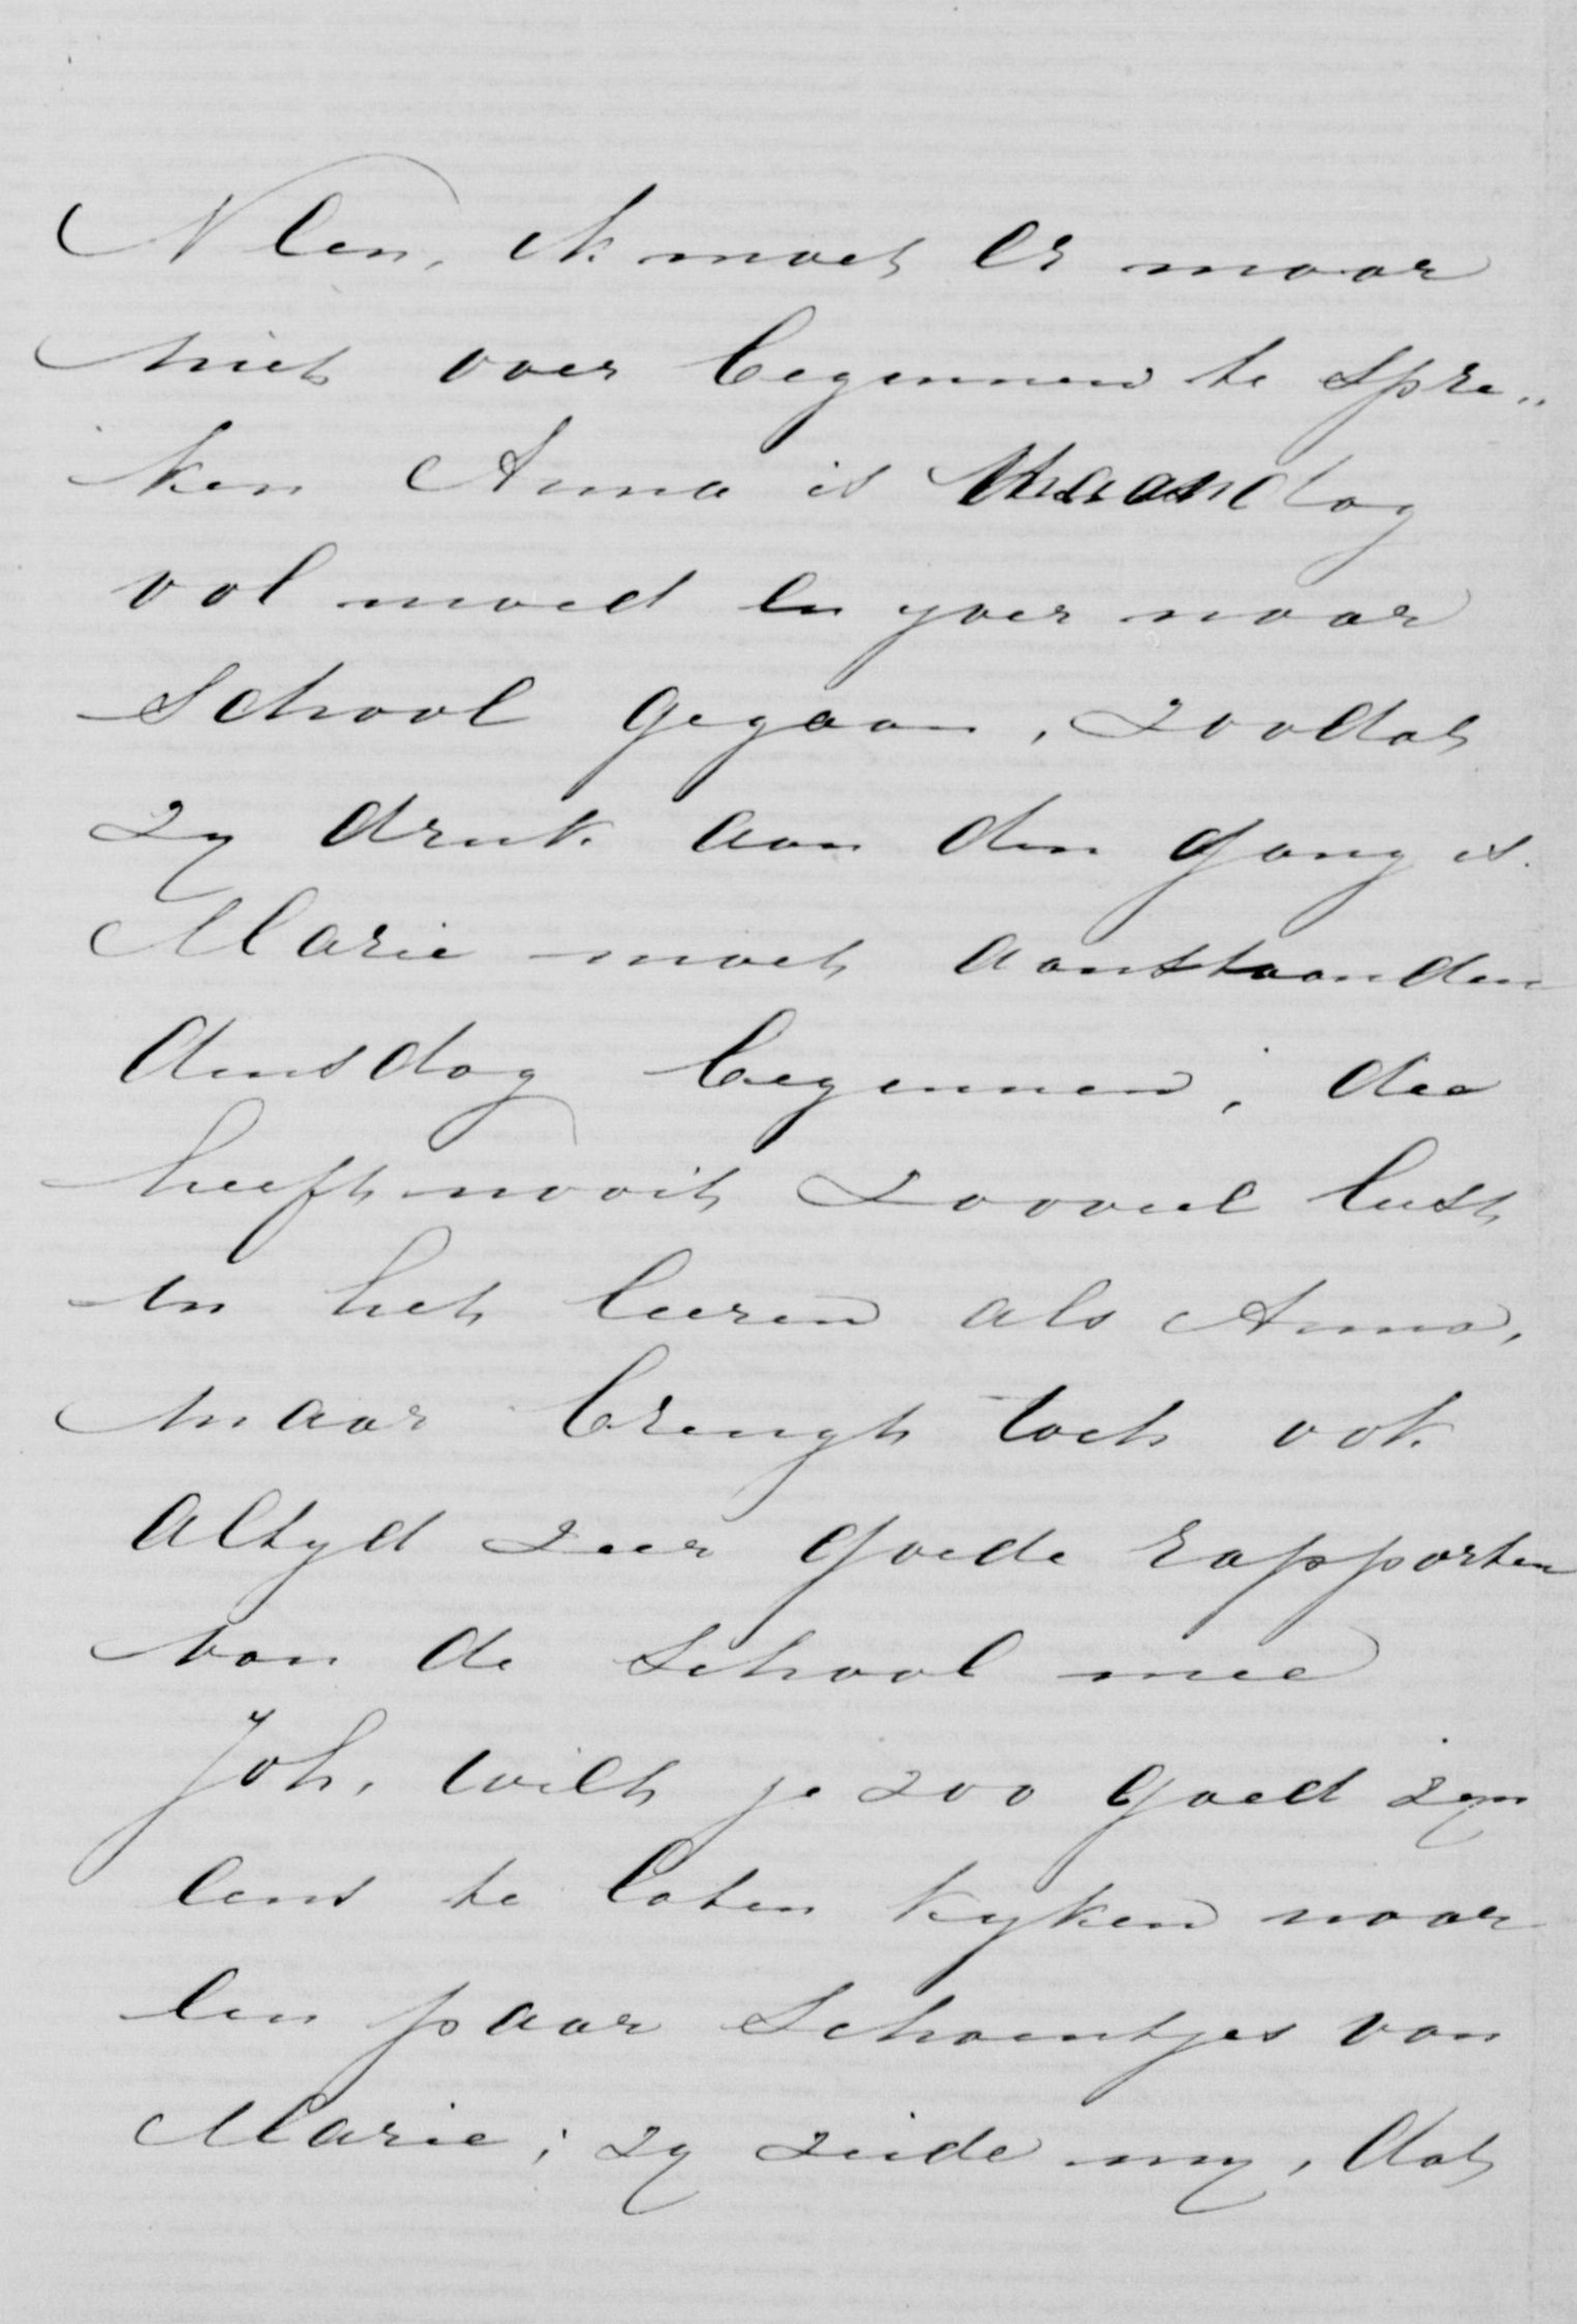 Neen, ik moet er maar
niet over beginnen te spre„
ken Anna is Maandag
vol moed en yver naar
school gegaan, zoodat
zy druk aan den gang is.
Marie moet aanstaanden
dinsdag beginnen; die
heeft nooit zooveel lust
in het leeren als Anna,
maar brengt toch ook
altyd zeer goede rapporten
van de school mee
Joh, wilt je zoo goed zyn
eens te laten kyken naar
een paar schoentjes van
Marie; zy zeide my, dat